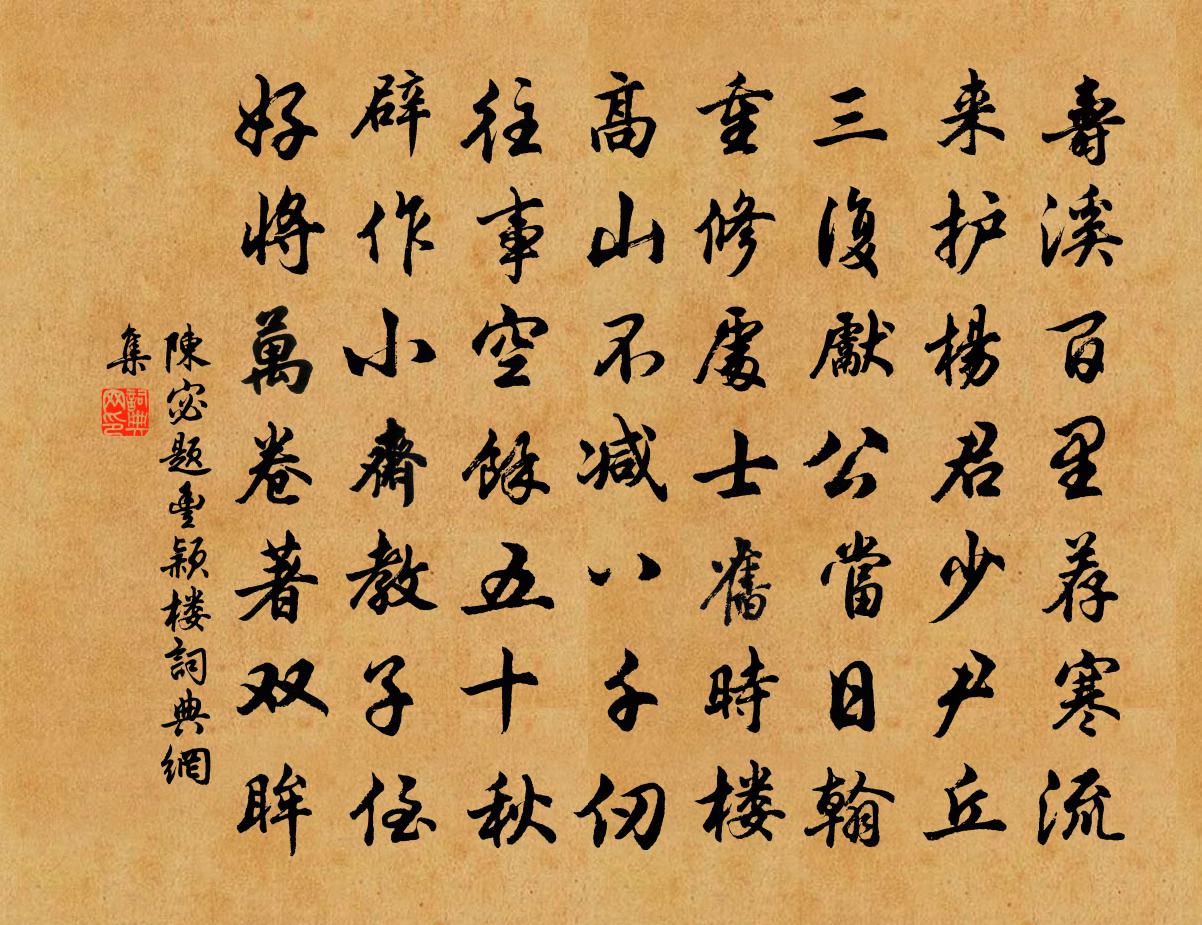 壽溪百里荐寒流
来护楊君少尹丘
三復獻公當日翰
重修處士舊時楼
髙山不减八千仞
往事空餘五十秋
辟作小齋教子侄
好將萬卷著双眸
陳宓題豊穎楼詞典網
集
詞典網印